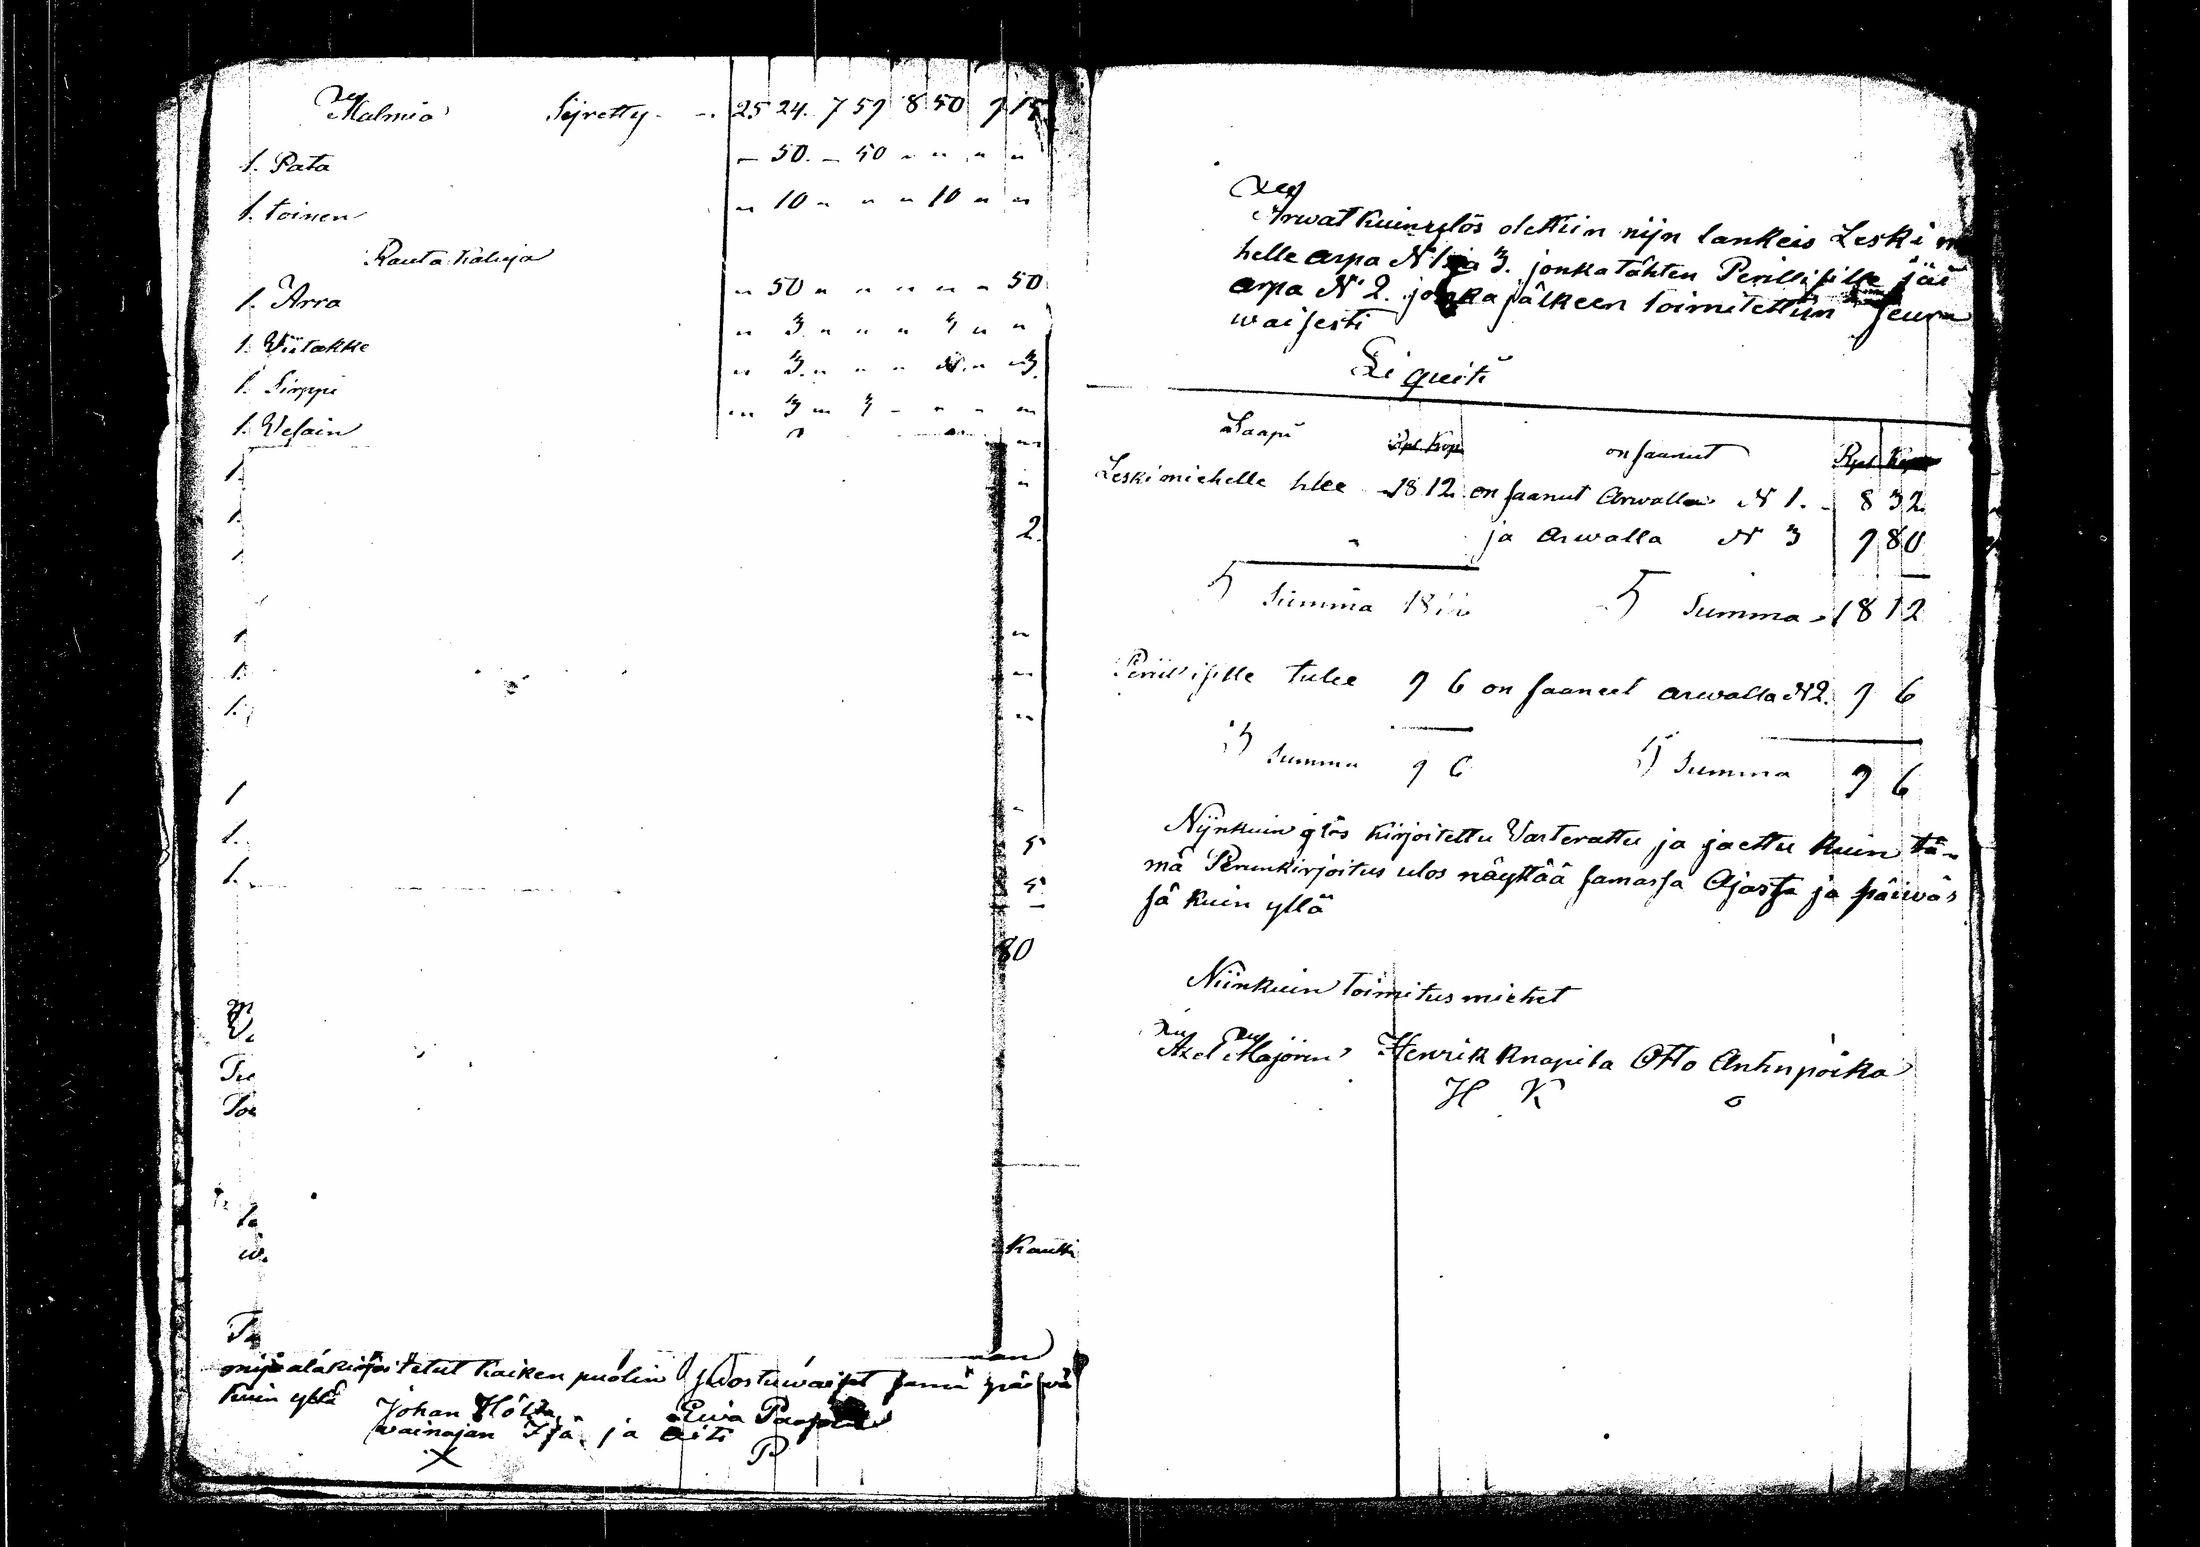 Malmia Sijretty 25 24. 7 59 8 50 9 15
1. Pata — 50. — 50 " " " "
1. toinen " 10 " " " 10 " "
Rauta Kaluja
1. Arra " 50 " " " " " 50
1. Wiitakke " 3 " " " 3 " "
1. Sirppi " 3. " " " " " 3.
1. Wesain " 3 " 3 " " " "
1.
1. 2.
1.
1.
1.
1.
1
1. 5
1. 5
80
Kautti
alakirjoitetut kaiken puolin samä päiwä
kuin yllä
Johan Ewa
wainajan Isä ja äiti
X P
Arwat kuin ylös olettiin nijn lankeis Leski m
helle arpa N 1 ja 3. jonka tähten Perillisille jäi
arpa N 2. jonka jälkeen toimitettiin seura
waisesti
Liqviti
Saapi Rpl Kop on saanut Rpl Kop
Leskimiehelle tulee 18 12 on saanut Arwalla N 1. 8 32
" ja arwalla N 3 9 80
Summa 18 12 Summa 18 12
Perillisille tulee 9 6 on saaneet arwalla N 2. 9 6
Summa 9 6 Summa 9 6
Nijnkuin ylös kirjoitettu Warterattu ja jaettu kuin tä-
mä Perunkirjoitus ulos näyttää samassa Ajassa ja päiwäs
sä kuin yllä
Niinkuin toimitusmiehet
Axel Majören Henrik Knapila Otto Antinpoika
H K o